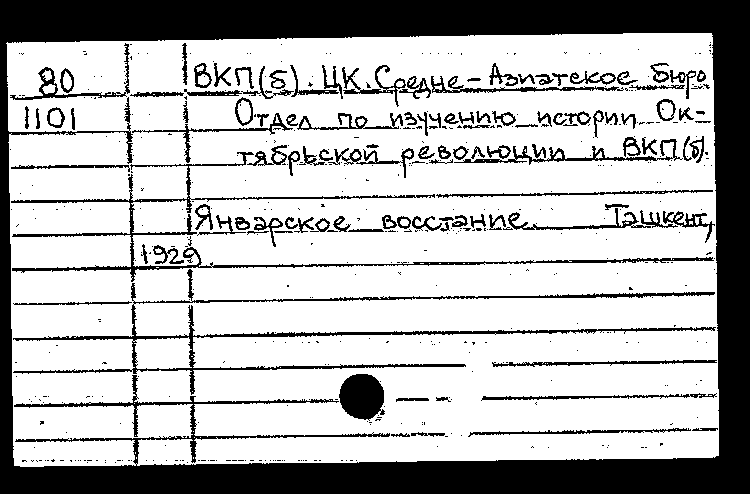 80 ВКП(б). ЦК. Средне-Азиатское бюро
1101 Отдел по изучению истории Ок-
тябрьской революции и ВКП(б).
Январское восстание. Ташкент,
1929.